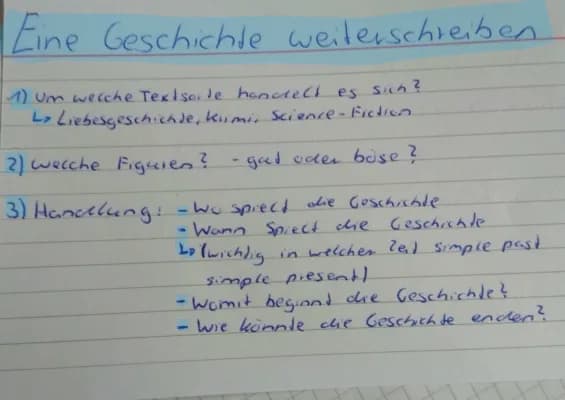 Eine Geschichte weiterschreiben
1) Um welche Textsorte handelt es sich?
↳ Liebesgeschichte, Krimi, Science-Fiction
2) Welche Figuren? - gut oder böse?
3) Handlung: - Wo spielt die Geschichte
- Wann spielt die Geschichte
↳ (wichtig in welcher Zeit simple past
simple present)
- Womit beginnt die Geschichte?
- Wie könnte die Geschichte enden?